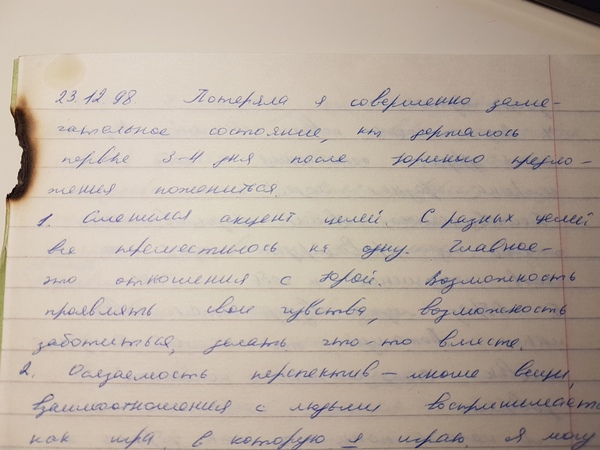 23.12.98 Потеряла я совершенно заме-
чательное состояние, кот держалось
первые 3-4 дня после Юриного предло-
жения пожениться.
1. Сменился акцент целей. С разных целей
все переместилось на одну. Главное-
это отношения с Юрой. Возможность
проявлять свои чувства, возможность
заботиться, делать что-то вместе.
2. Осязаемость перспектив - многие вещи,
взаимоотношения с людьми воспринимаются
как игра, в которую я играю. Я могу